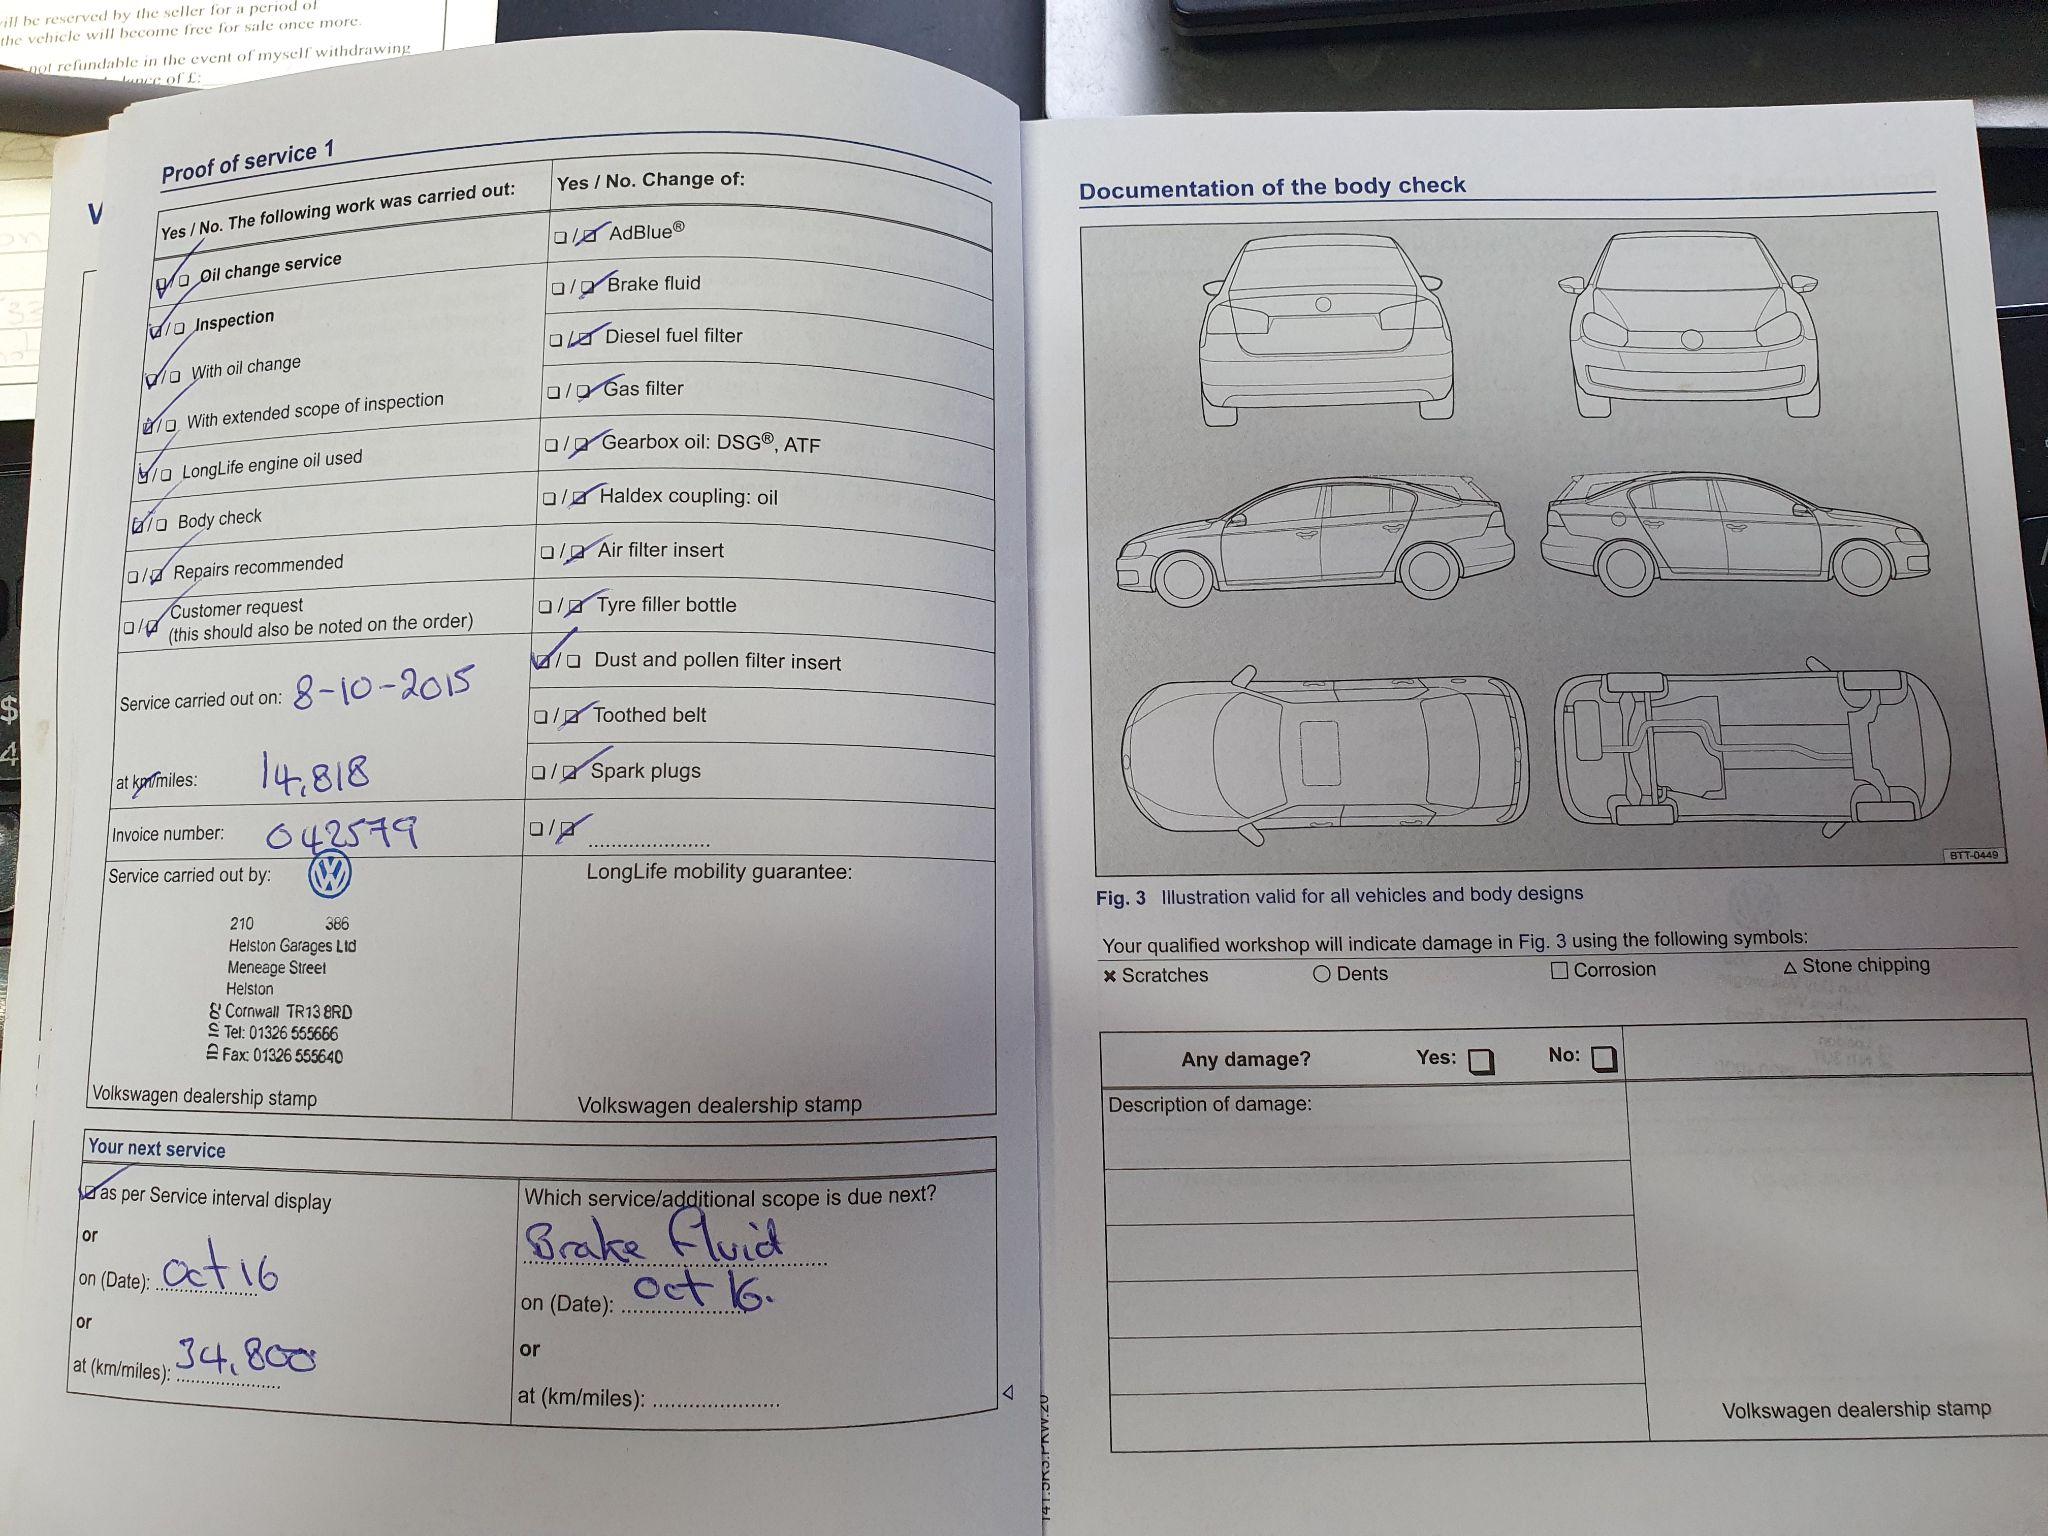 ill be reserved by the seller for a period of
the vehicle will become free for sale once more.
not refundable in the event of myself withdrawing
of £:
Proof of service 1
Yes / No. The following work was carried out:
Oil change service
Inspection
With oil change
With extended scope of inspection
LongLife engine oil used
Body check
Repairs recommended
Customer request
(this should also be noted on the order)
Service carried out on: 8-10-2015
at km/miles: 14,818
Invoice number: 042579
Service carried out by:
210 386
Helston Garages Ltd
Meneage Street
Helston
Cornwall TR13 8RD
Tel: 01326 555666
Fax: 01326 555640
Volkswagen dealership stamp
Yes / No. Change of:
AdBlue®
Brake fluid
Diesel fuel filter
Gas filter
Gearbox oil: DSG®, ATF
Haldex coupling: oil
Air filter insert
Tyre filler bottle
Dust and pollen filter insert
Toothed belt
Spark plugs
LongLife mobility guarantee:
Volkswagen dealership stamp
Your next service
as per Service interval display
or
on (Date): Oct 16
or
at (km/miles): 34,800
Which service/additional scope is due next?
Brake Fluid
on (Date): Oct 16.
or
at (km/miles):
Documentation of the body check
BTT-0449
Fig. 3 Illustration valid for all vehicles and body designs
Your qualified workshop will indicate damage in Fig. 3 using the following symbols:
× Scratches ○ Dents □ Corrosion △ Stone chipping
Any damage? Yes: No:
Description of damage:
Volkswagen dealership stamp